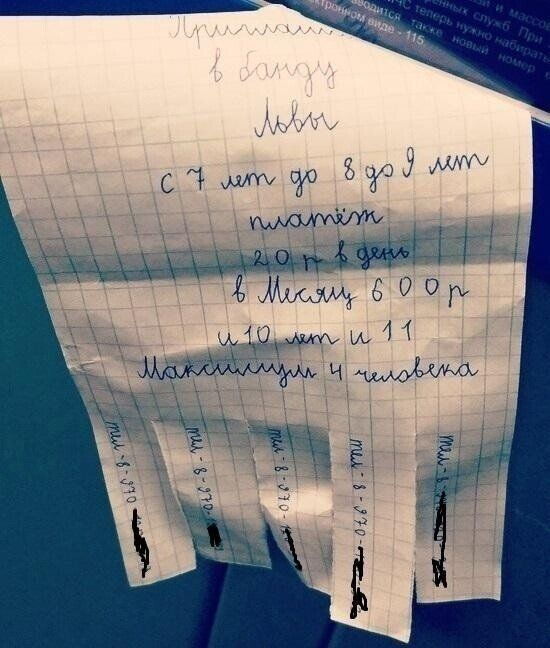 в банду
Львы
с 7 лет до 8 до 9 лет
платёж
20 р в день
в Месяц 600 р
и 10 лет и 11
Максимум 4 человека
тел-8-970-
тел-8-970-
тел-8-970-
тел-8-970-
тел-8-
и массо
нных служб При
ЧС теперь нужно набирать
водится также новый номер
ктронном виде - 115